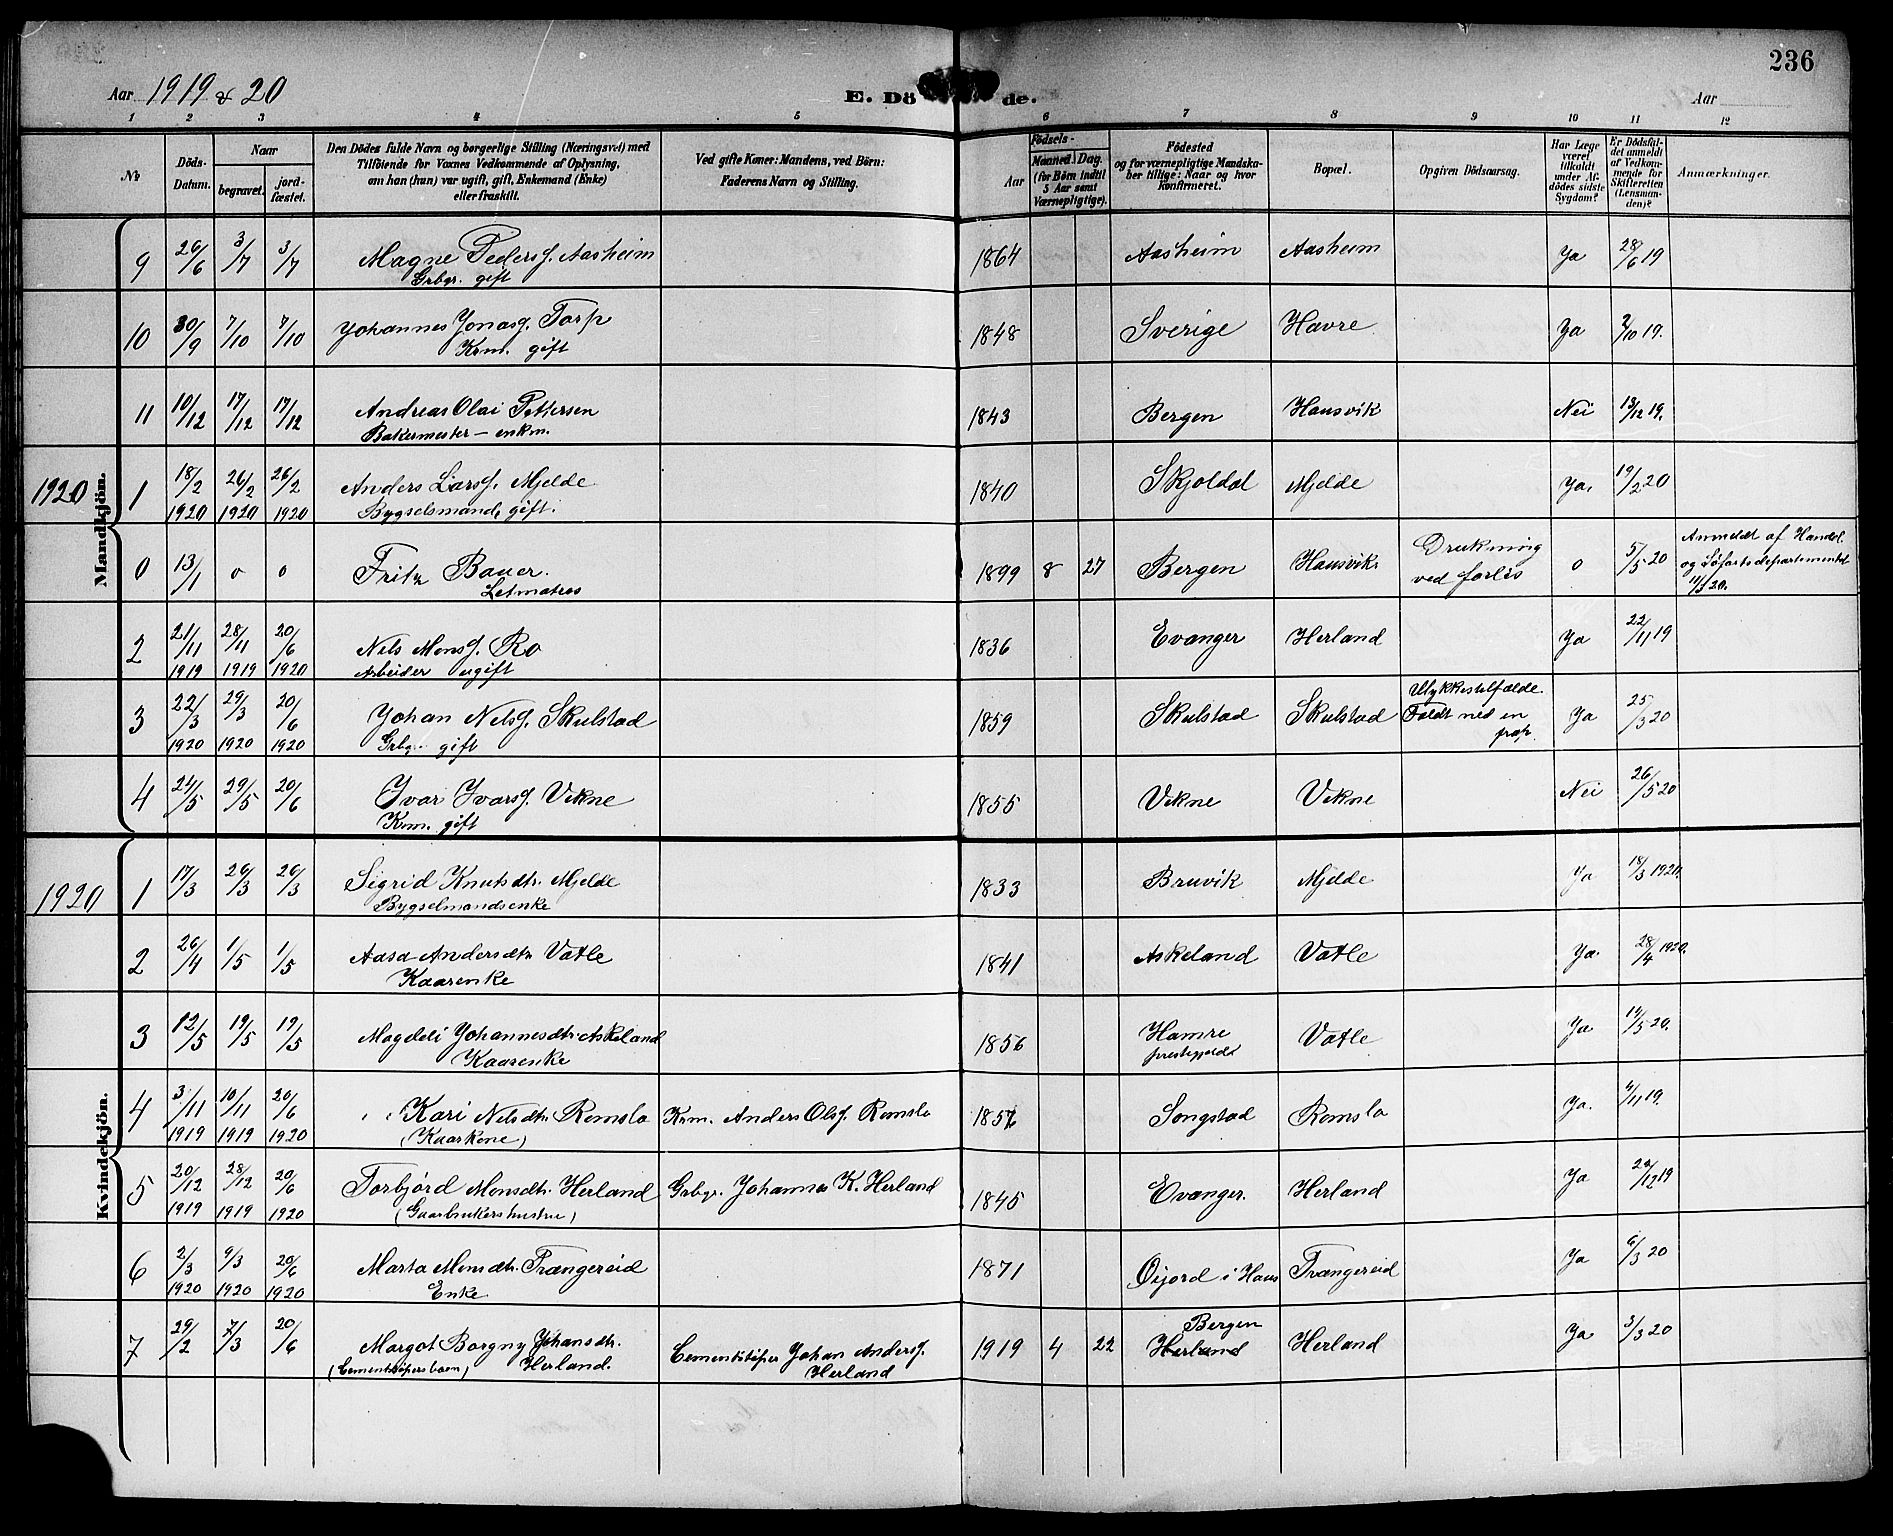 236
Aar 1919 & 20
E. Dö de.
Aar
1 2 3 4 5 6 7 8 9 10 11 12
№
Döds-Datum.
Naar
begravet.
jord-fæstet.
Den Dødes fulde Navn og borgerlige Stilling (Næringsvei) med
Tilföiende for Voxnes Vedkommende af Oplysning,
om han (hun) var ugift, gift, Enkemand (Enke)
eller fraskilt.
Ved gifte Koner: Mandens, ved Börn:
Faderens Navn og Stilling.
Födsels-
Aar
Maaned. Dag.
(for Börn indtil
5 Aar samt
Værnepligtige).
Födested
og for værnepligtige Mandska-
ber tillige: Naar og hvor
konfirmeret.
Bopæl.
Opgiven Dödsaarsag.
Har Læge
været
tilkaldt
under Af-
dödes sidste
Sygdom?
Er Dödsfal-
det anmeldt
af Vedkom-
mende for
Skifteretten
(Lensman-
den)?
Anmærkninger.
Mandkjön.
9 26/6 3/7 3/7 Magne Pedersf. Aasheim 1864 Aasheim Aasheim Ja 28/6 19
Grbgr. gift
10 30/9 7/10 7/10 Johannes Jonasf. Torp 1848 Sverige Havre Ja 2/10 19.
Krm. gift
11 10/12 17/12 17/12 Andreas Olai Pettersen 1843 Bergen Hausvik Nei 13/12 19.
Bakermester – enkm.
1920 1 18/2 26/2 26/2 Anders Larsf. Mjelde 1840 Skjoldal Mjelde Ja. 19/2 20
1920 1920 1920 Bygselmand, gift.
0 13/1 o o Fritz Bauer. 1899 8 27 Bergen Hausvik Drukning o 5/5 20 Anmeldt af Handel.
Letmatros ved forlis og Söfartsdepartementet
11/3 20.
2 21/11 28/11 20/6 Nels Monsf. Ro 1836 Evanger Herland Ja 22/11 19
1919 1919 1920 Arbeider ugift
3 22/3 29/3 20/6 Johan Nelsf. Skulstad 1859 Skulstad Skulstad Ulykkestilfælde. Ja 25/3 20
1920 1920 1920 Grbgr. gift Faldt ned en
4 24/5 29/5 20/6 Ivar Ivarsf. Vikne 1855 Vikne Vikne Nei 26/5 20
Krm. gift
Kvindekjön.
1920 1 17/3 26/3 26/3 Sigrid Knutsdtr. Mjelde 1833 Bruvik Mjelde Ja 18/3 1920.
Bygselmandsenke
2 26/4 1/5 1/5 Aasa Andersdtr Vatle 1841 Askeland Vatle Ja. 28/4 1920.
Kaarenke
3 12/5 19/5 19/5 Magdeli Johannesdtr. Askeland 1856 Hamre Vatle Ja 14/5 20.
Kaarenke prestegjeld
4 3/11 10/11 20/6 Kari Nelsdtr. Romslo Krm. Anders Olsf. Romslo 1857 Songstad Romslo Ja. 4/11 19.
1919 1919 1920 (Kaarkone)
5 20/12 28/12 20/6 Torbjörd Monsdtr. Herland Grbgr. Johannes K. Herland 1845 Evanger. Herland Ja 29/12 19
1919 1919 1920 (Gaarbrukerhustru)
6 2/3 9/3 20/6 Marta Monsdtr. Trængereid 1871 Öijord i Haus Trængereid Ja 6/3 20
1920 1920 1920 Enke
7 29/2 7/3 20/6 Margot Borgny Johansdtr. Cementstöper Johan Andersf. 1919 4 22 Bergen Herland Ja 3/3 20
(Cementstöpers barn) Herland. Herland Herland